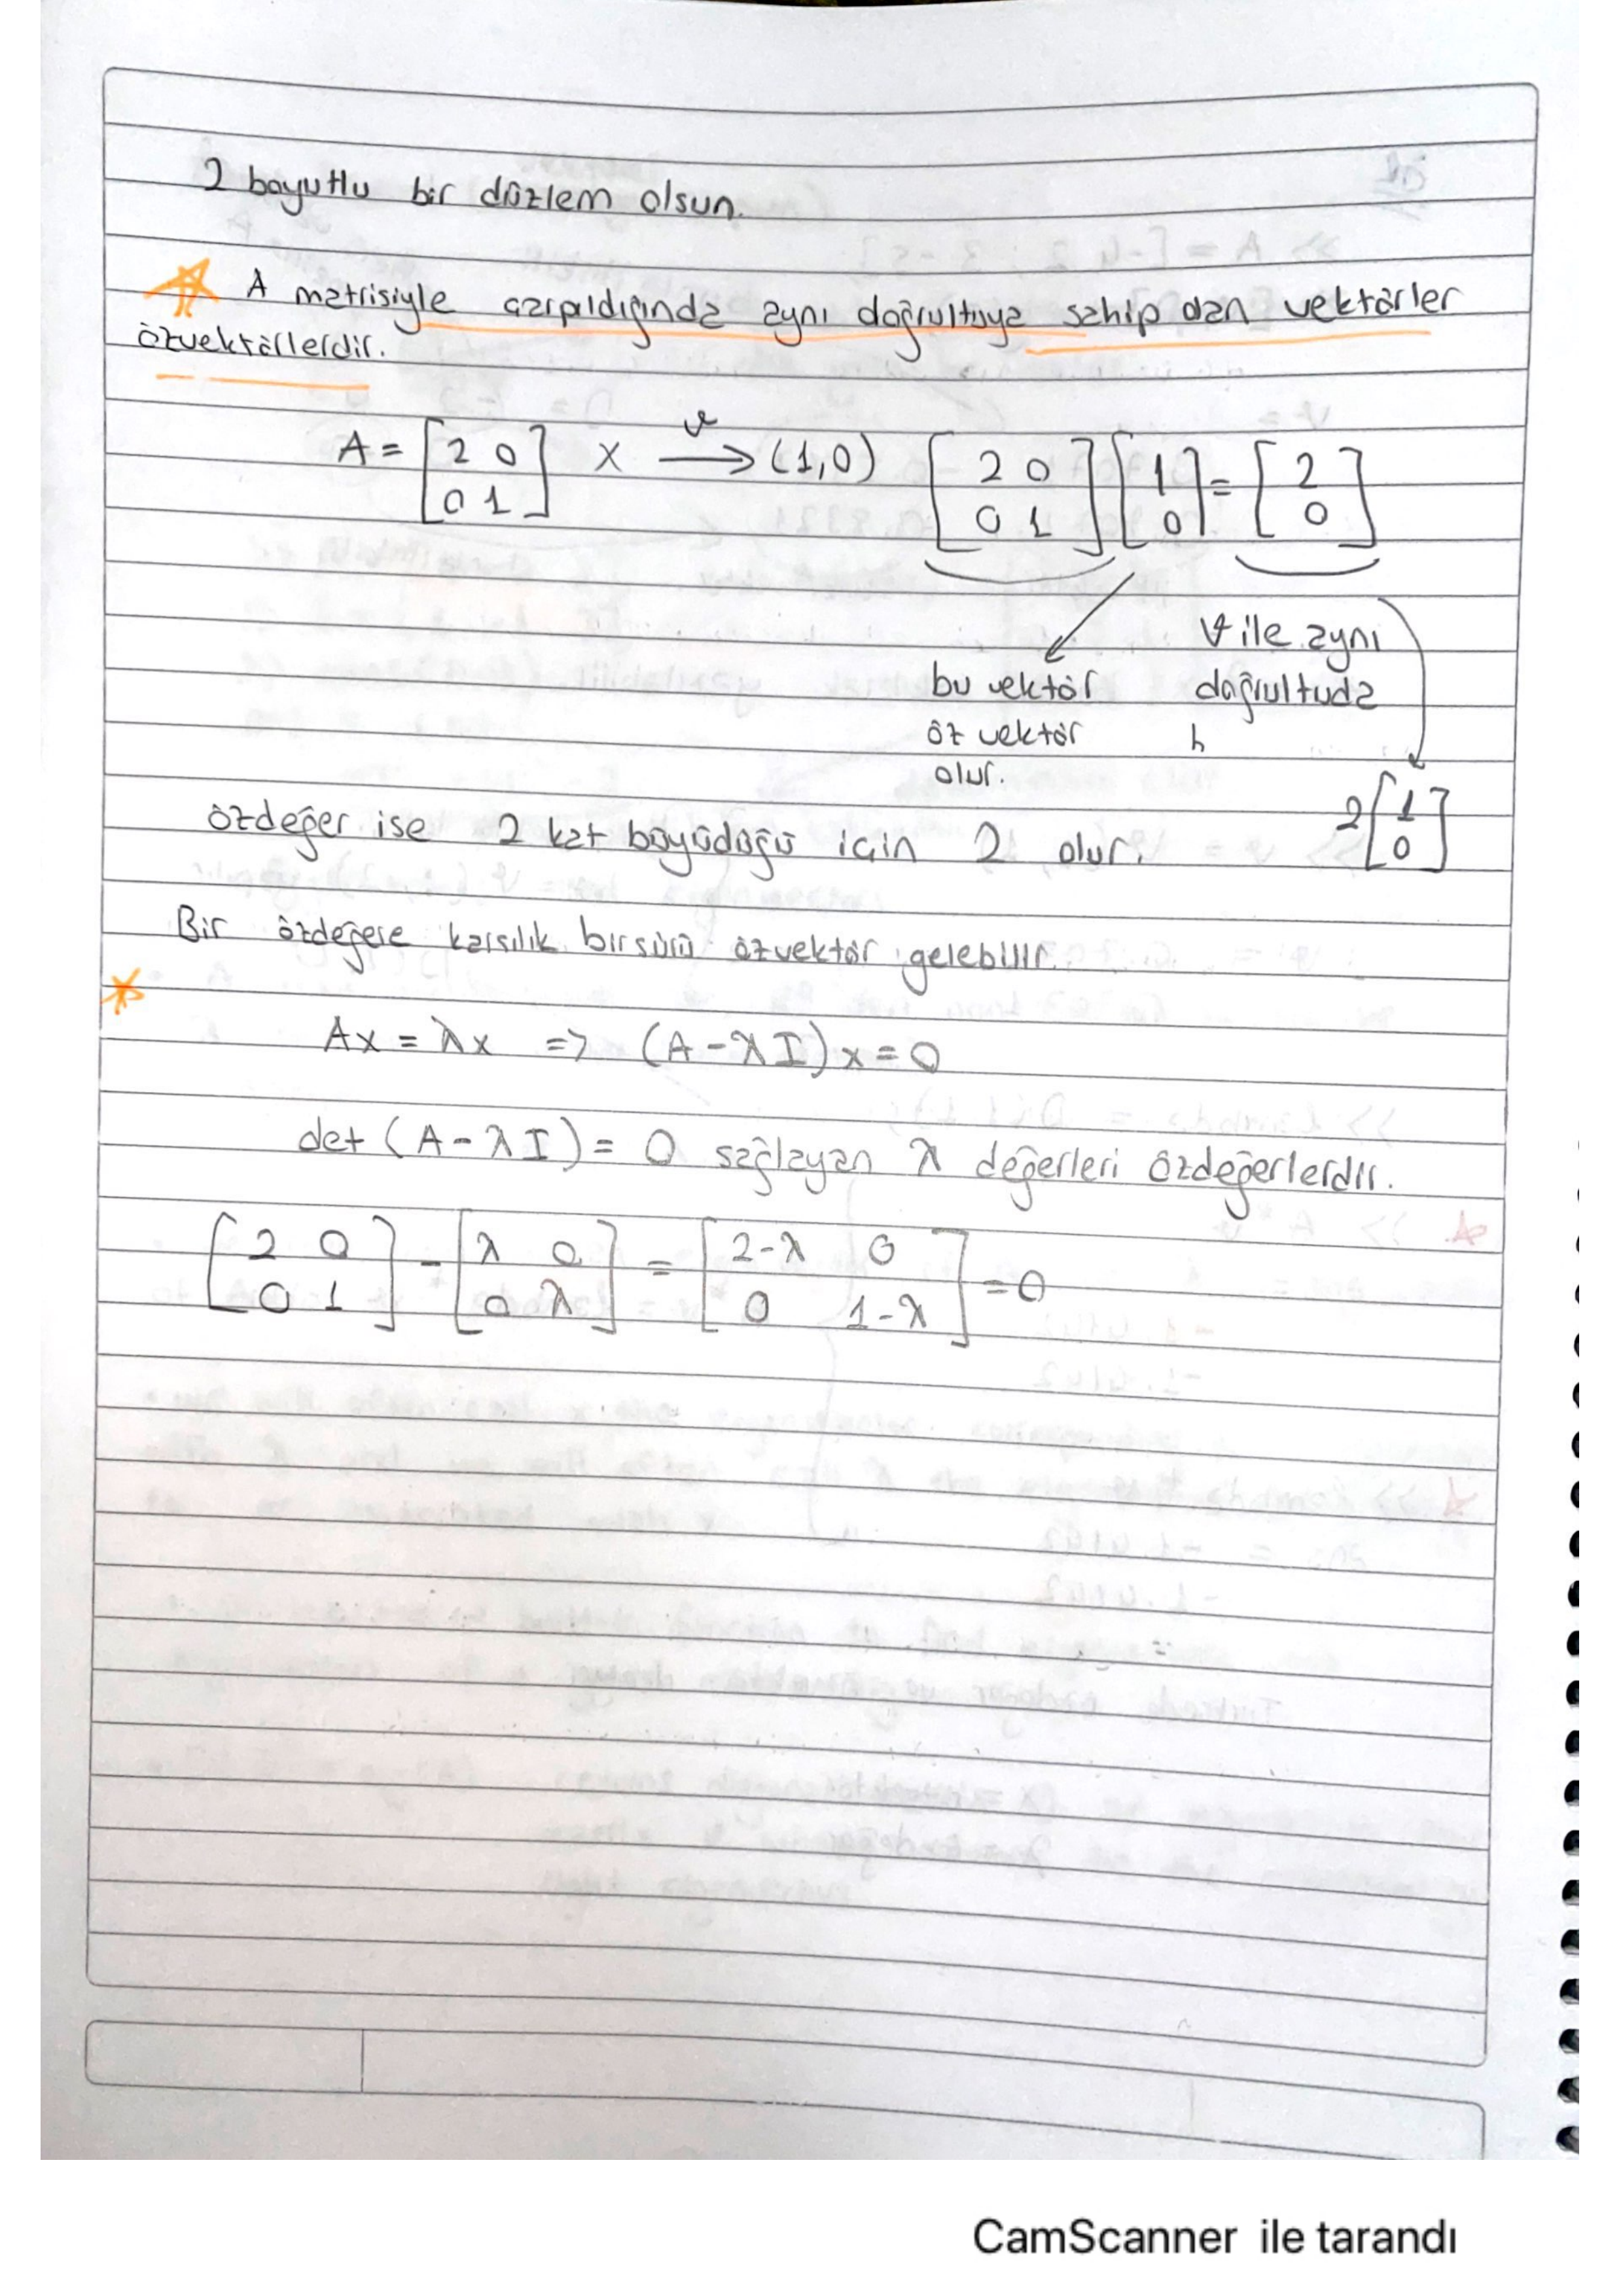 2 boyutlu bir düzlem olsun.
A matrisiyle çarpıldığında aynı doğrultuya sahip olan vektörler
özvektörlerdir.
A = [2 0; 0 1] x v → (1,0) [2 0; 0 1] [1; 0] = [2; 0]
bu vektör
öz vektör
olur.
v ile aynı
doğrultuda
2 [1; 0]
özdeğer ise 2 kat büyüdüğü için 2 olur.
Bir özdeğere karşılık bir sürü özvektör gelebilir.
Ax = λx => (A - λI) x = 0
det (A - λI) = 0 sağlayan λ değerleri özdeğerlerdir.
[2 0; 0 1] - [λ 0; 0 λ] = [2-λ 0; 0 1-λ] = 0
CamScanner ile tarandı